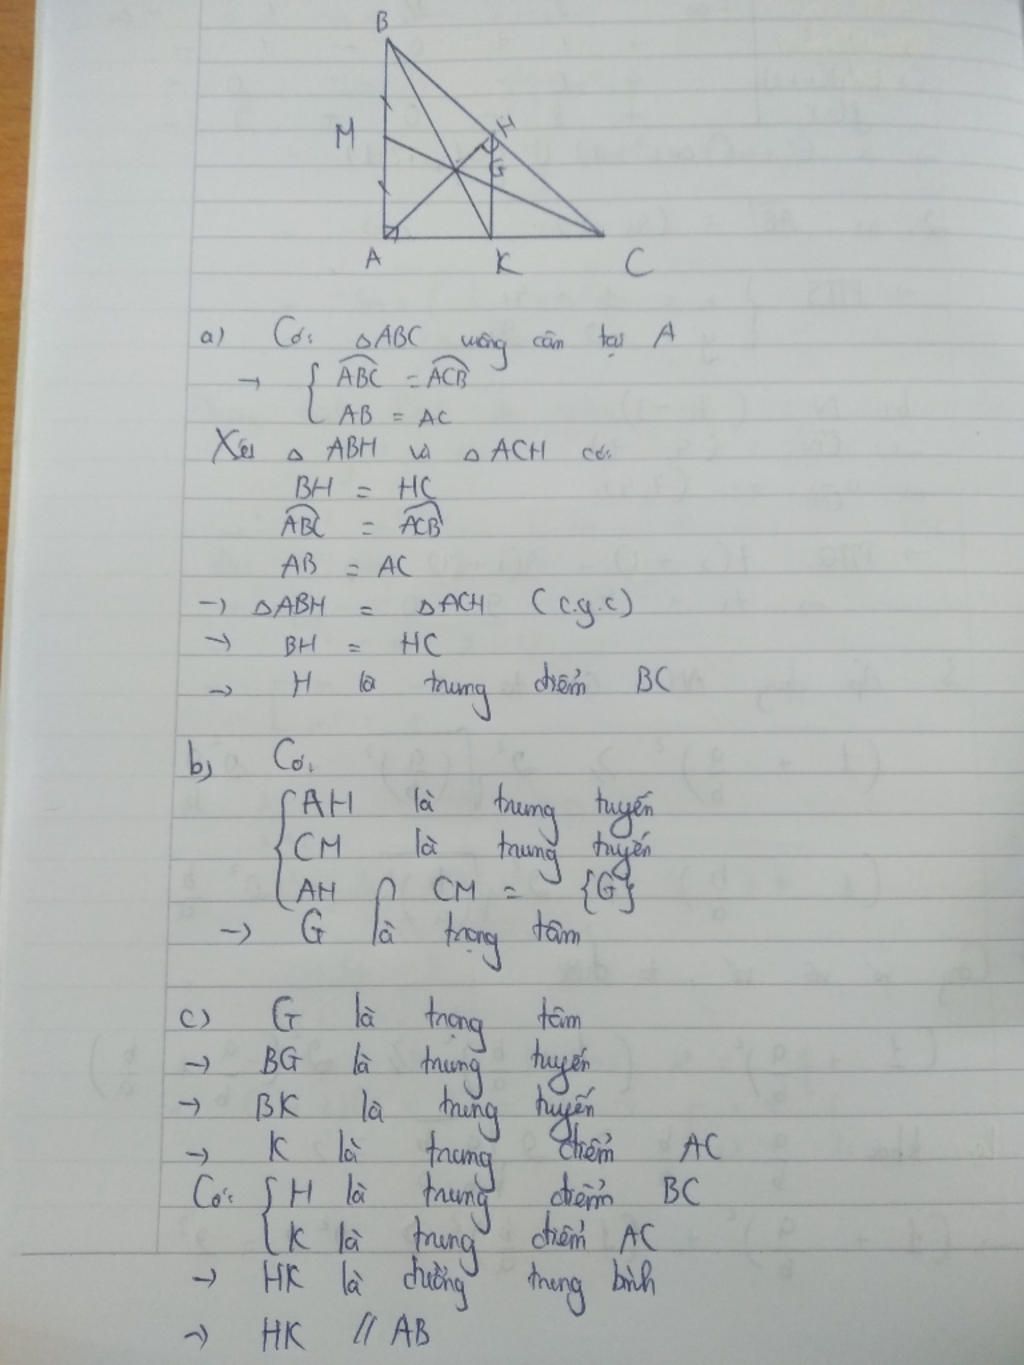 B
M
H
G
A K C
a) Có: △ABC vuông cân tại A
→ { ABC = ACB
AB = AC
Xét △ ABH và △ ACH có:
BH = HC
ABC = ACB
AB = AC
→ △ABH = △ACH (c.g.c)
→ BH = HC
→ H là trung điểm BC
b) Có:
{ AH là trung tuyến
CM là trung tuyến
AH ∩ CM = {G}
→ G là trọng tâm
c) G là trọng tâm
→ BG là trung tuyến
→ BK là trung tuyến
→ K là trung điểm AC
Có: { H là trung điểm BC
K là trung điểm AC
→ HK là đường trung bình
→ HK // AB